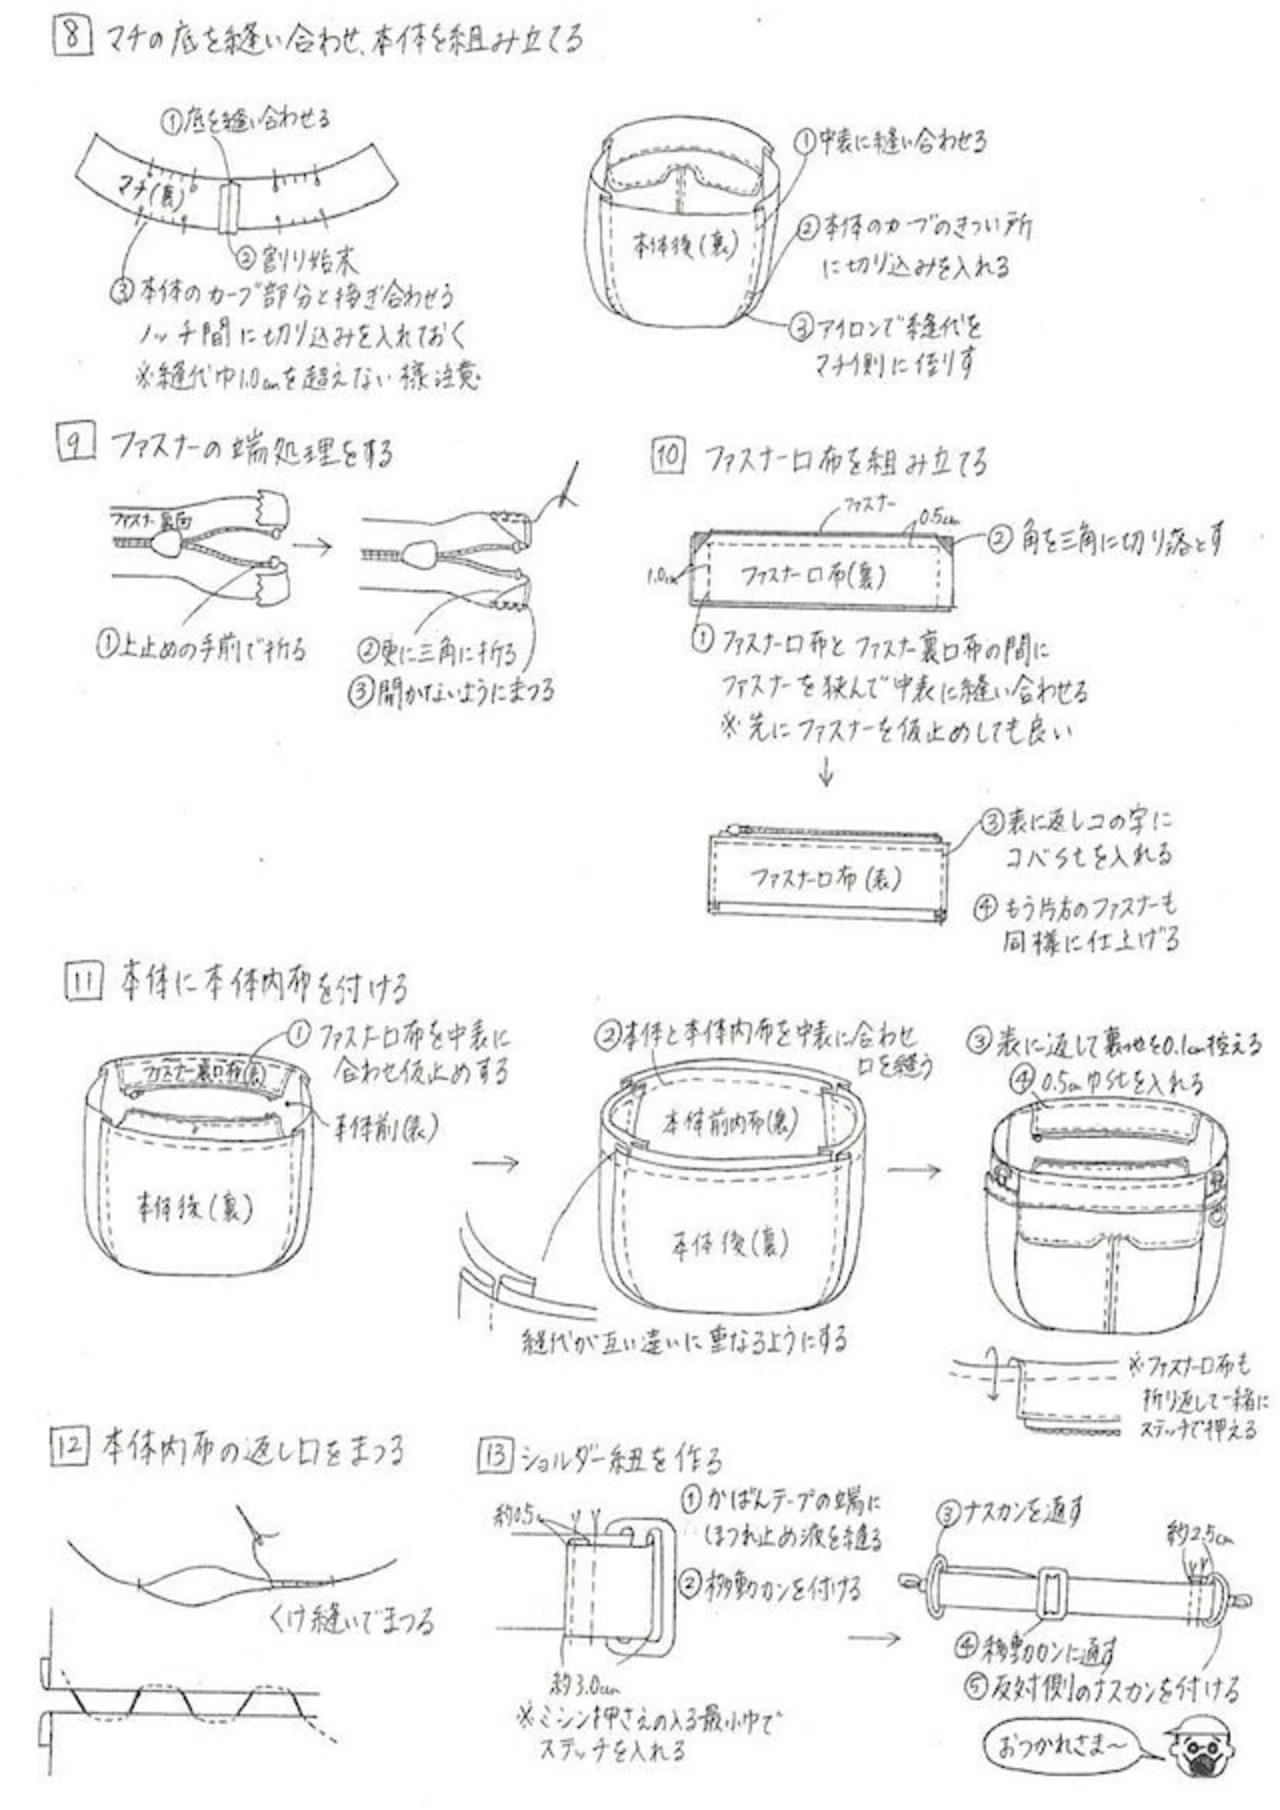 8 マチの底を縫い合わせ、本体を組み立てる
①底を縫い合わせる
マチ(裏)
②割り始末
③本体のカーブ部分と接ぎ合わせる
ノッチ間に切り込みを入れておく
※縫代巾1.0cmを超えない様注意
①中表に縫い合わせる
本体後(裏)
②本体のカーブのきつい所
に切り込みを入れる
③アイロンで縫代を
マチ側に倒す
9 ファスナーの端処理をする
ファスナー裏面
①上止めの手前で折る
②更に三角に折る
③開かないようにまつる
10 ファスナー口布を組み立てる
ファスナー
0.5cm
②角を三角に切り落とす
1.0cm
ファスナー口布(裏)
①ファスナー口布とファスナー裏口布の間に
ファスナーを挟んで中表に縫い合わせる
※先にファスナーを仮止めしても良い
③表に返しコの字に
コバstを入れる
ファスナー口布(表)
④もう片方のファスナーも
同様に仕上げる
11 本体に本体内布を付ける
①ファスナー口布を中表に
合わせ仮止めする
ファスナー裏口布(表)
本体前(表)
本体後(裏)
②本体と本体内布を中表に合わせ
口を縫う
本体前内布(裏)
本体後(裏)
縫代が互い違いに重なるようにする
③表に返して裏地を0.1cm控える
④0.5cm巾stを入れる
※ファスナー口布も
折り返して一緒に
ステッチで押える
12 本体内布の返し口をまつる
くけ縫いでまつる
13 ショルダー紐を作る
約0.5c
①かばんテープの端に
ほつれ止め液を塗る
②移動カンを付ける
約3.0cm
※ミシン押さえの入る最小巾で
ステッチを入れる
③ナスカンを通す
約2.5cm
④移動カンに通す
⑤反対側のナスカンを付ける
おつかれさま〜